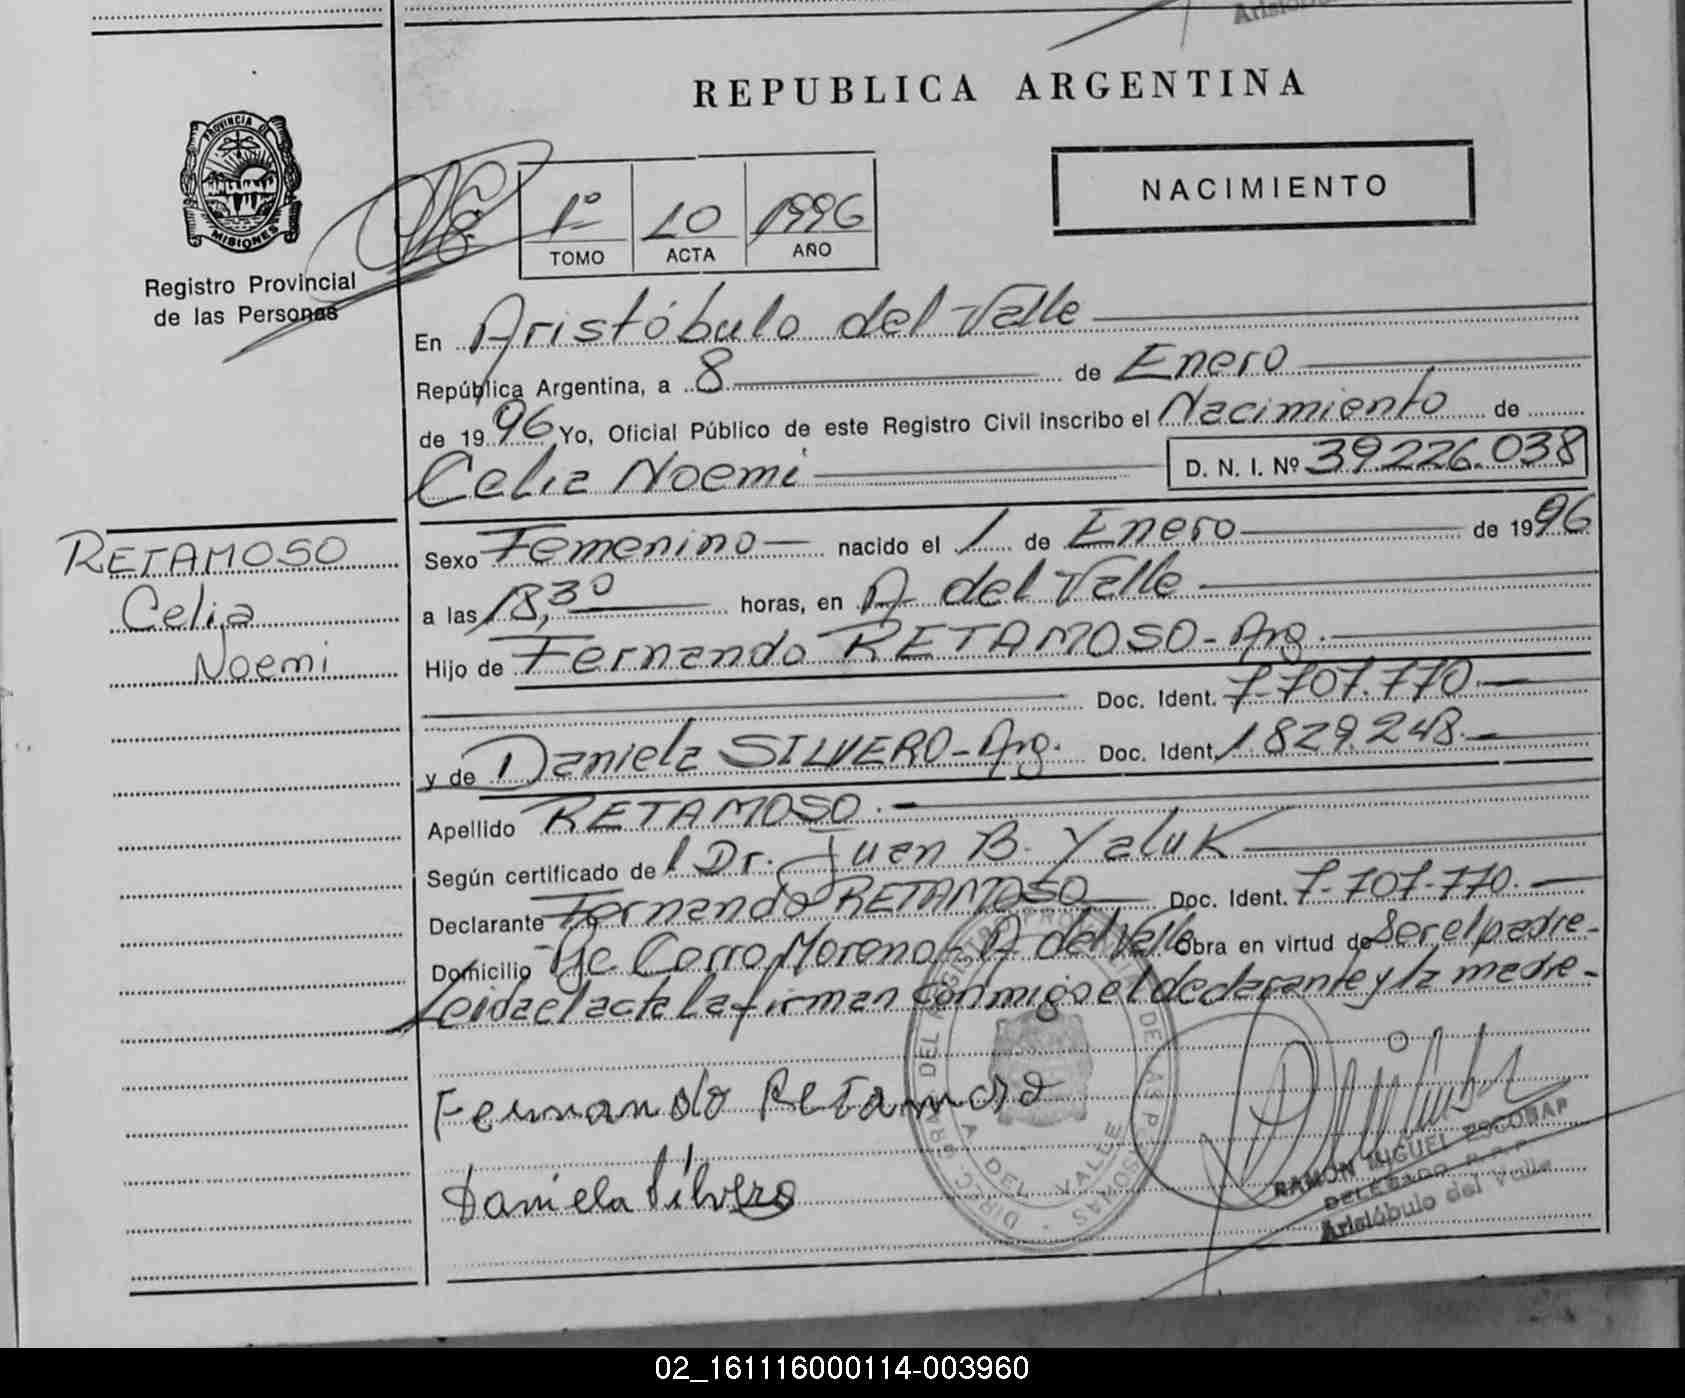 REPUBLICA ARGENTINA
PROVINCIA DE
MISIONES
Registro Provincial
de las Personas
NACIMIENTO
1º 10 1996
TOMO ACTA AÑO
En Aristóbulo del Valle
República Argentina, a 8 de Enero
de 1996 Yo, Oficial Público de este Registro Civil inscribo el Nacimiento de
Celia Noemi D. N. I. Nº 39.226.038
RETAMOSO
Celia
Noemi
Sexo Femenino nacido el 1 de Enero de 1996
a las 18,30 horas, en A. del Valle
Hijo de Fernando RETAMOSO - Arg.
Doc. Ident. 7.707.770.
y de Daniela SILVERO - Arg. Doc. Ident. 1.829.248.
Apellido RETAMOSO.
Según certificado de l Dr. Juan B. Yaluk
Declarante Fernando RETAMOSO Doc. Ident. 7.707.770.
Domicilio Corro Moreno - A del Valle Obra en virtud de Ser el padre -
Leida el acta la firman conmigo el declarante y la madre -
Fernando Retamoso
Daniela Silvero
RAMÓN MIGUEL ESCOBAR
DELEGADO R.P.P.
Aristóbulo del Valle
02_161116000114-003960